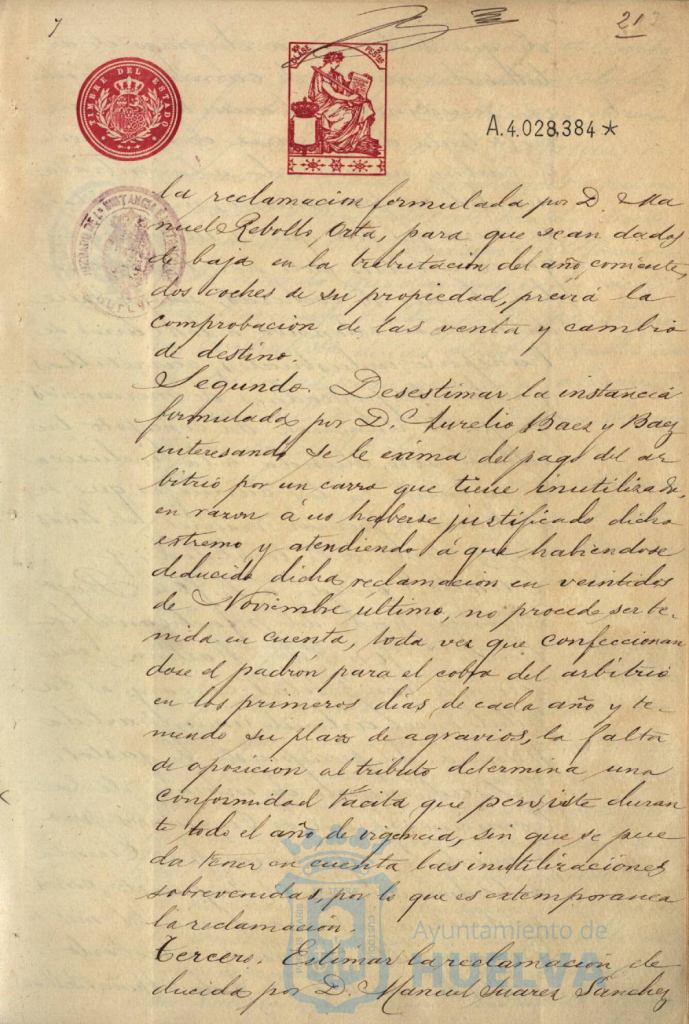 21
TIMBRE DEL ESTADO
CLASE
2 PESETAS
A.4.028,384*
la reclamacion formulada por D. Ma
nuel Rebollo Orta, para que sean dados
de baja en la tributacion del año corriente,
dos coches de su propiedad, previa la
comprobacion de las venta y cambio
de destino.
Segundo. Desestimar la instancia
formulada por D. Aurelio Baez y Baez
interesando se le exima del pago del ar
bitrio por un carro que tiene inutilizado,
en razon á no haberse justificado dicho
extremo y atendiendo á que habiendose
deducido dicha reclamacion en veintidos
de Noviembre último, no procede ser te-
nida en cuenta, toda vez que confeccionan
dose el padrón para el cobro del arbitrio
en los primeros dias de cada año y te-
niendo su plazo de agravios, la falta
de oposicion al tributo determina una
conformidad tácita que persiste duran
te todo el año de vigencia, sin que se pue
da tener en cuenta las inutilizaciones
sobrevenidas, por lo que es extemporanea
la reclamación.
Tercero. Estimar la reclamación de
ducida por D. Manuel Suarez Sanchez
Ayuntamiento de
HUELVA